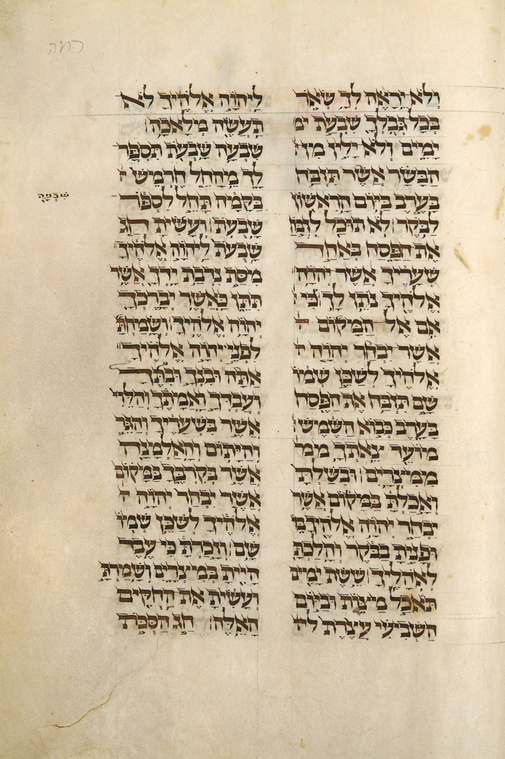 ולא יראה לך שאר
בכל גבלך שבעת ימ
ימים ולא ילין מן
הבשר אשר תזבח
בערב ביום הראשון
לבקר לא תוכל לזבח
את הפסח באחד
שעריך אשר יהוה
אלהיך נתן לך כי
אם אל המקום
אשר יבחר יהוה
אלהיך לשכן שמו
שם תזבח את הפסח
בערב כבוא השמש
מועד צאתך ממ
ממצרים ובשלת
ואכלת במקום אשר
יבחר יהוה אלהיך בו
ופנית בבקר והלכת
לאהליך ששת ימים
תאכל מצות וביום
השביעי עצרת לי
ליהוה אלהיך לא
תעשה מלאכה
שבעה שבעת תספר
לך מהחל חרמש
בקמה תחל לספר
שבעות ועשית חג
שבעות ליהוה אלהיך
מסת נדבת ידך אשר
תתן כאשר יברכך
יהוה אלהיך ושמחת
לפני יהוה אלהיך
אתה ובנך ובתך
ועבדך ואמתך והלוי
אשר בשעריך והגר
והיתום והאלמנה
אשר בקרבך במקום
אשר יבחר יהוה
אלהיך לשכן שמו
שם וזכרת כי עבד
היית במצרים ושמרת
ועשית את החקים
האלה חג הסכת